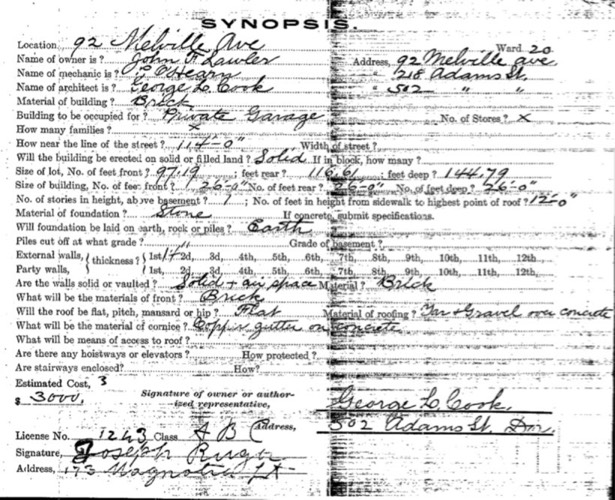 SYNOPSIS.
Location 92 Melville Ave Ward 20
Name of owner is? John F Lawler Address, 92 Melville ave
Name of mechanic is? O'Hearn " 218 Adams St.
Name of architect is? George L. Cook " 502 " "
Material of building? Brick
Building to be occupied for? Private Garage No. of Stores? X
How many families?
How near the line of the street? 114'-0" Width of street?
Will the building be erected on solid or filled land? Solid. If in block, how many?
Size of lot, No. of feet front? 97.19 ; feet rear? 116.61 ; feet deep? 144.79
Size of building, No. of feet front? 26'-0" No. of feet rear? 26-0" No. of feet deep? 26-0"
No. of stories in height, above basement? 1 ; No. of feet in height from sidewalk to highest point of roof? 12'-0"
Material of foundation? Stone If concrete, submit specifications.
Will foundation be laid on earth, rock or piles? Earth
Piles cut off at what grade? Grade of basement?
External walls, } thickness? { 1st, 2d, 3d, 4th, 5th, 6th, 7th, 8th, 9th, 10th, 11th, 12th
Party walls, 1st, 2d, 3d, 4th, 5th, 6th, 7th, 8th, 9th, 10th, 11th, 12th
Are the walls solid or vaulted? Solid + air space Material? Brick
What will be the materials of front? Brick
Will the roof be flat, pitch, mansard or hip? Flat Material of roofing? Tar + Gravel over concrete
What will be the material of cornice? Copper gutter on concrete
What will be means of access to roof?
Are there any hoistways or elevators? How protected?
Are stairways enclosed? How?
Estimated Cost,
$ 3000, Signature of owner or authorized representative, George L Cook,
Address, 502 Adams St. Dor.
License No. 1243 Class A B C
Signature, Joseph Rugo
Address, 173 Magnolia St